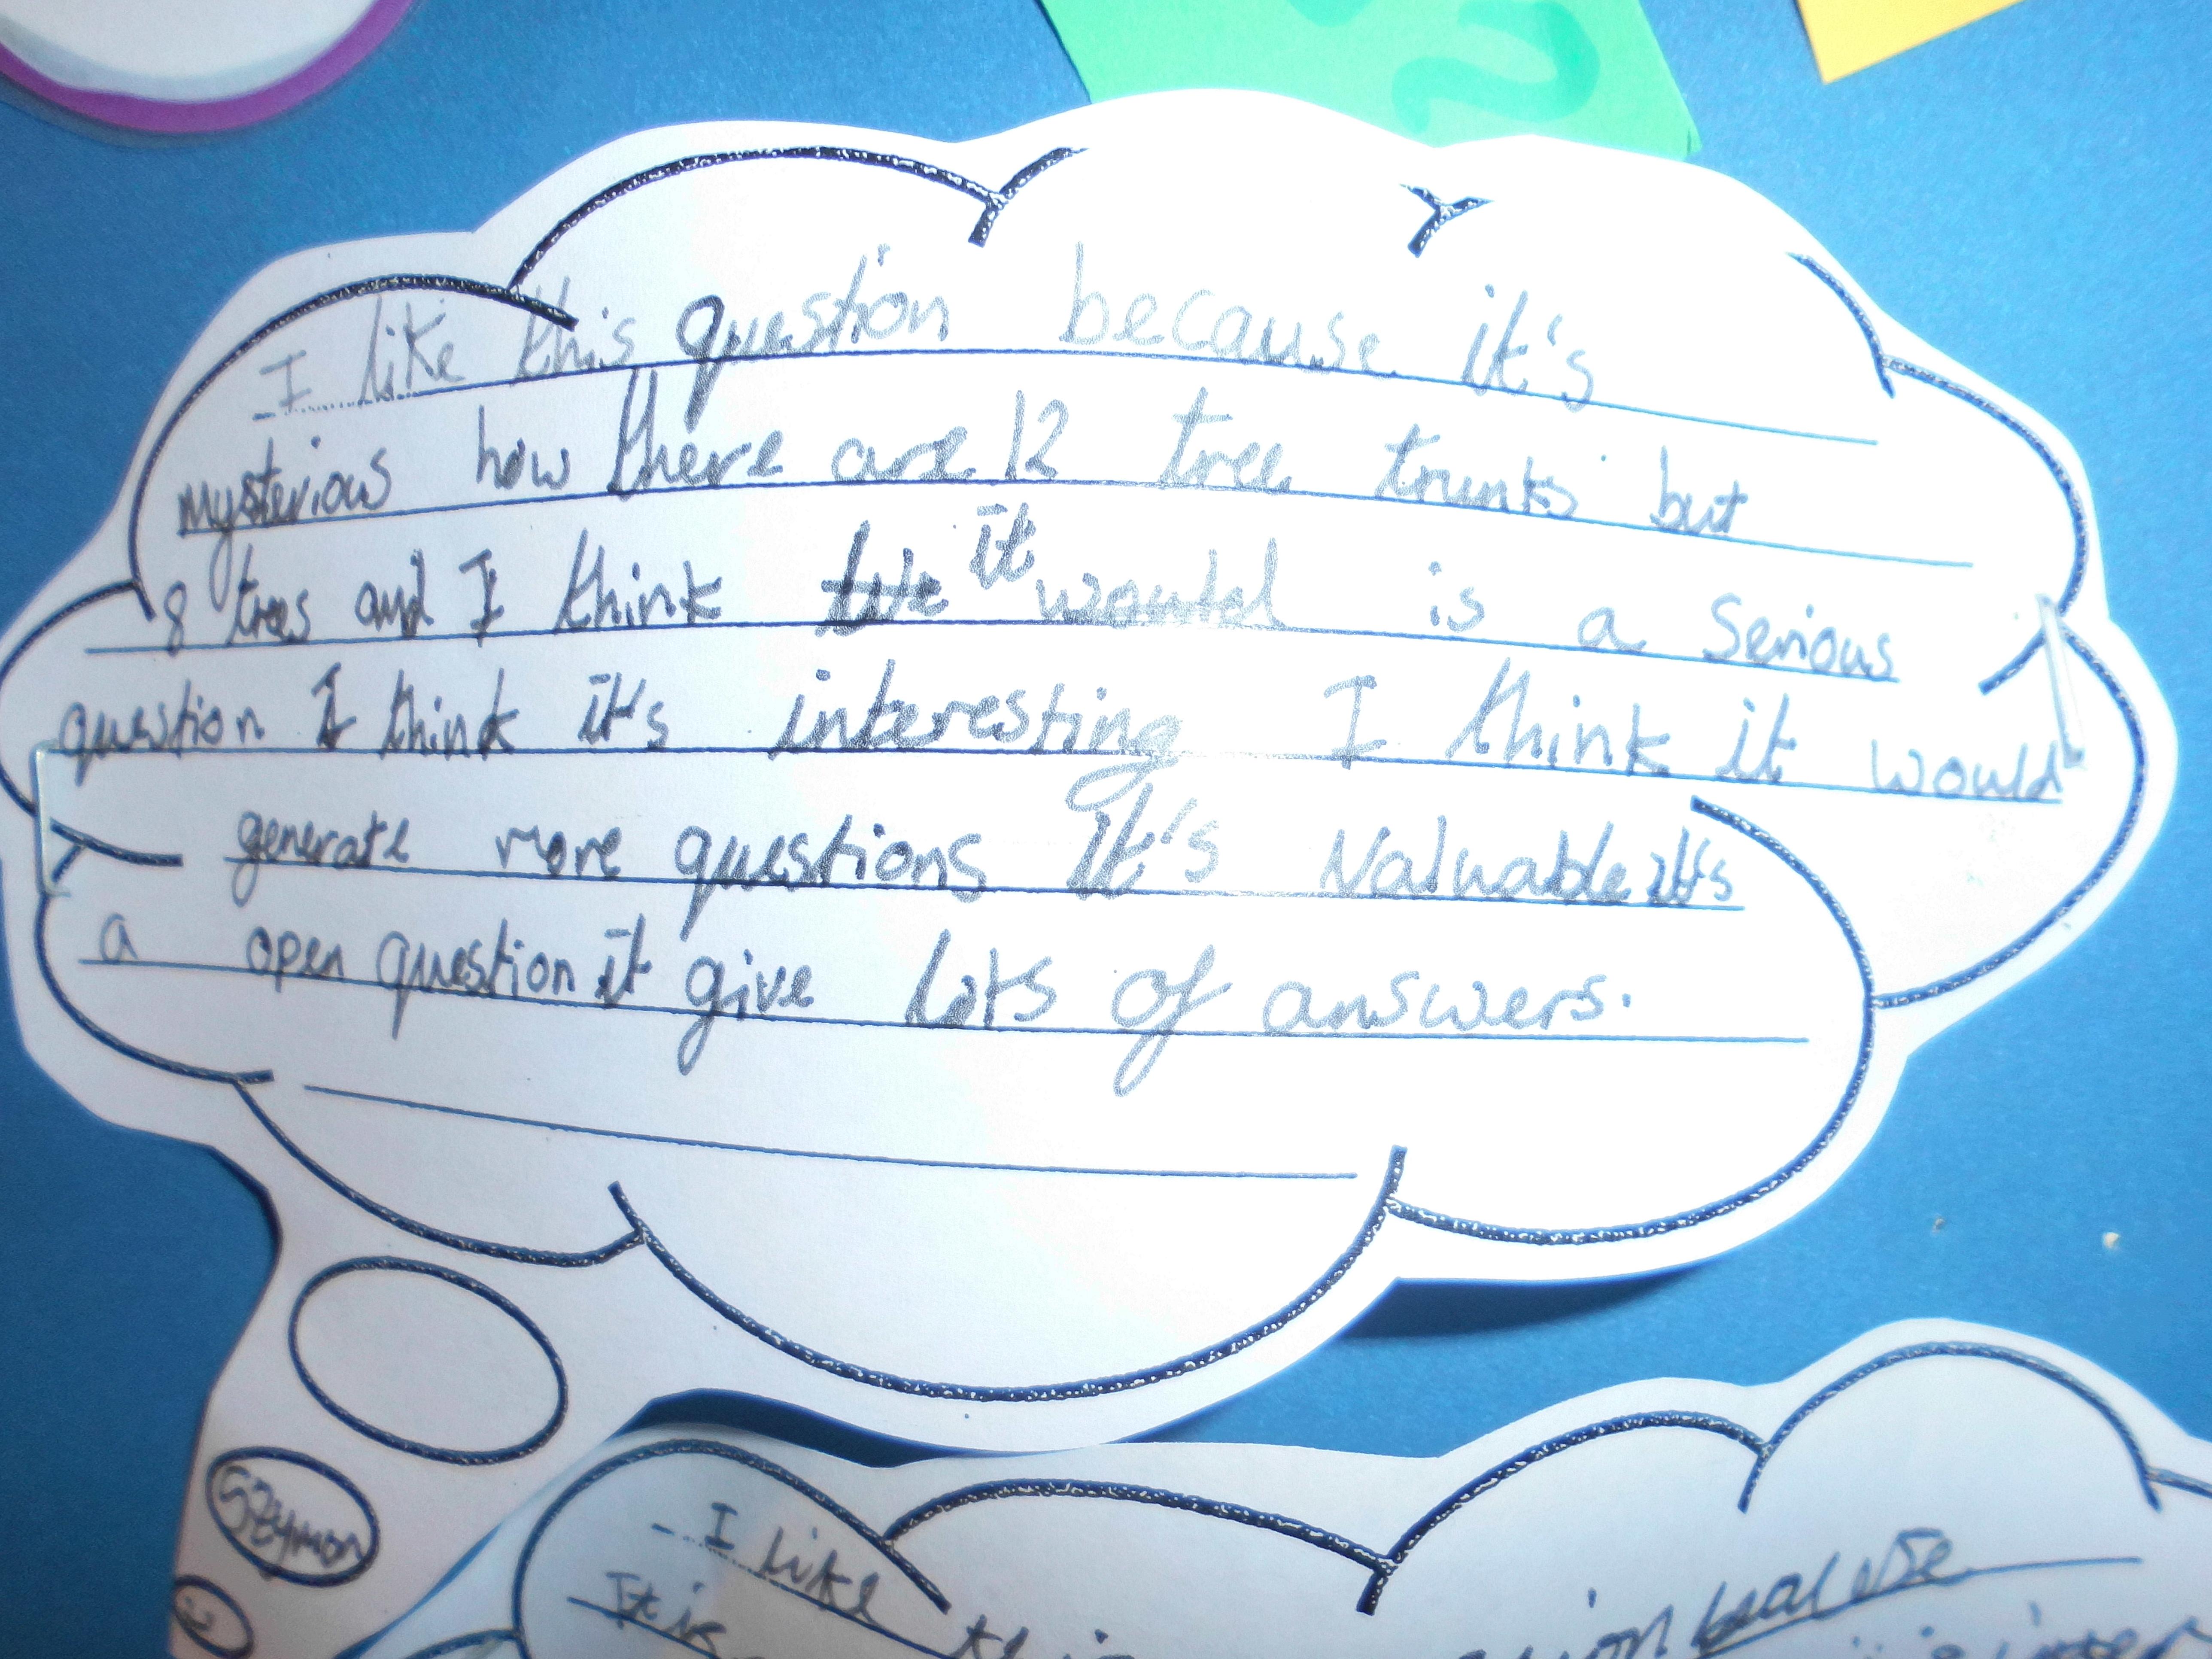 I like this question because it's
mysterious how there are 12 tree trunks but
8 trees and I think it would is a serious
question I think it's interesting I think it would
generate more questions It's valuable it's
a open question it give lots of answers.
Szymon
I like
It is